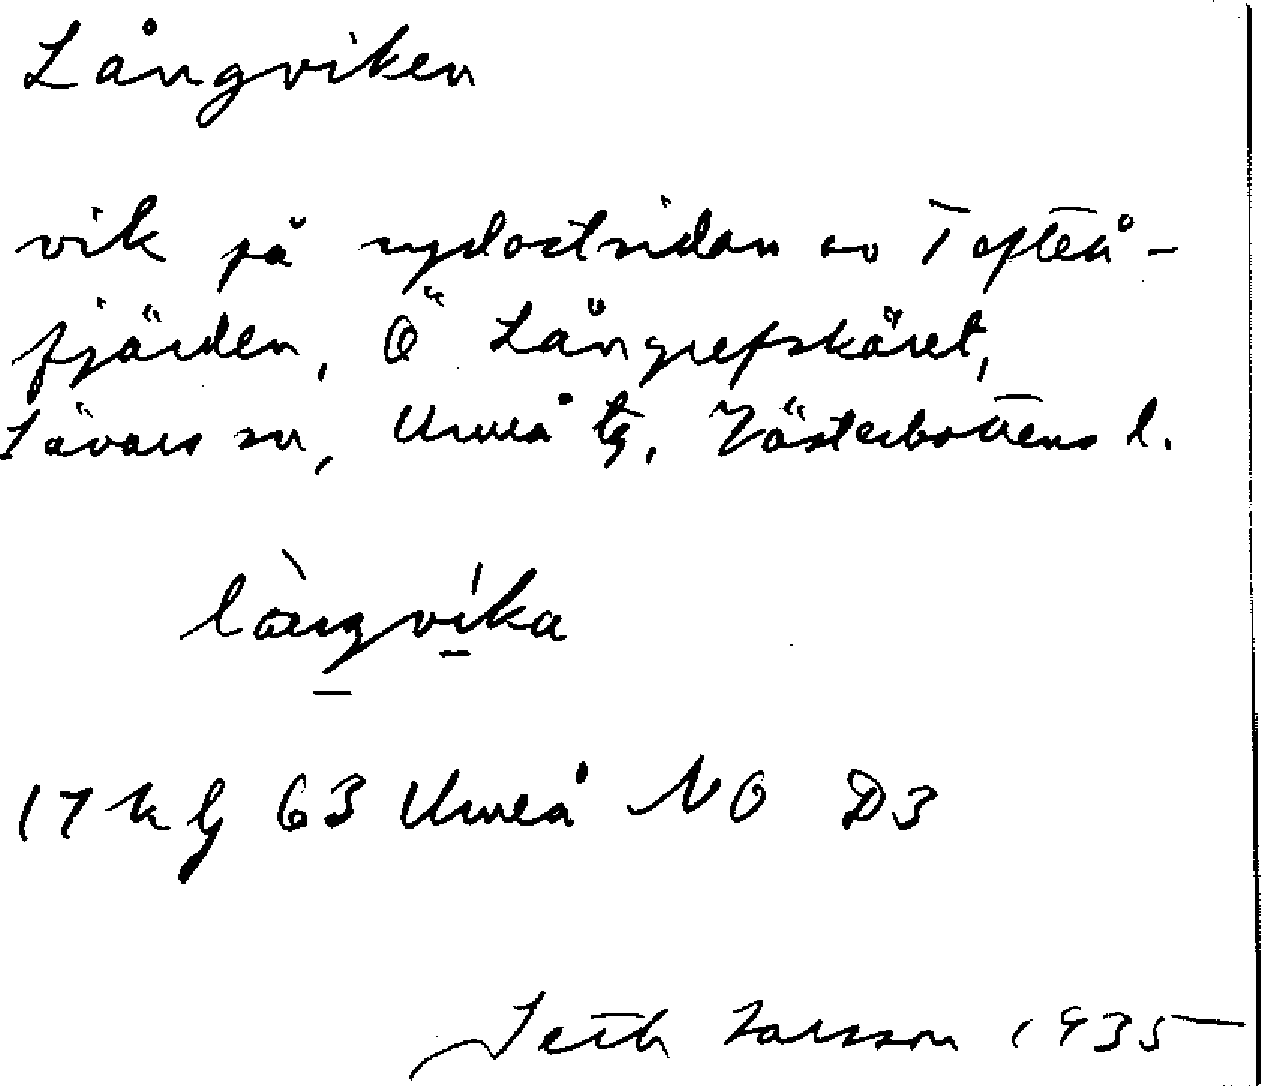 Långviken
vik på sydostsidan av Täfteå-
fjärden, Ö Långrefskäret,
Sävars sn, Umeå tg, Västerbottens l.
làngvíka
17 k bl 63 Umeå NO D3
Seth Larsson 1935